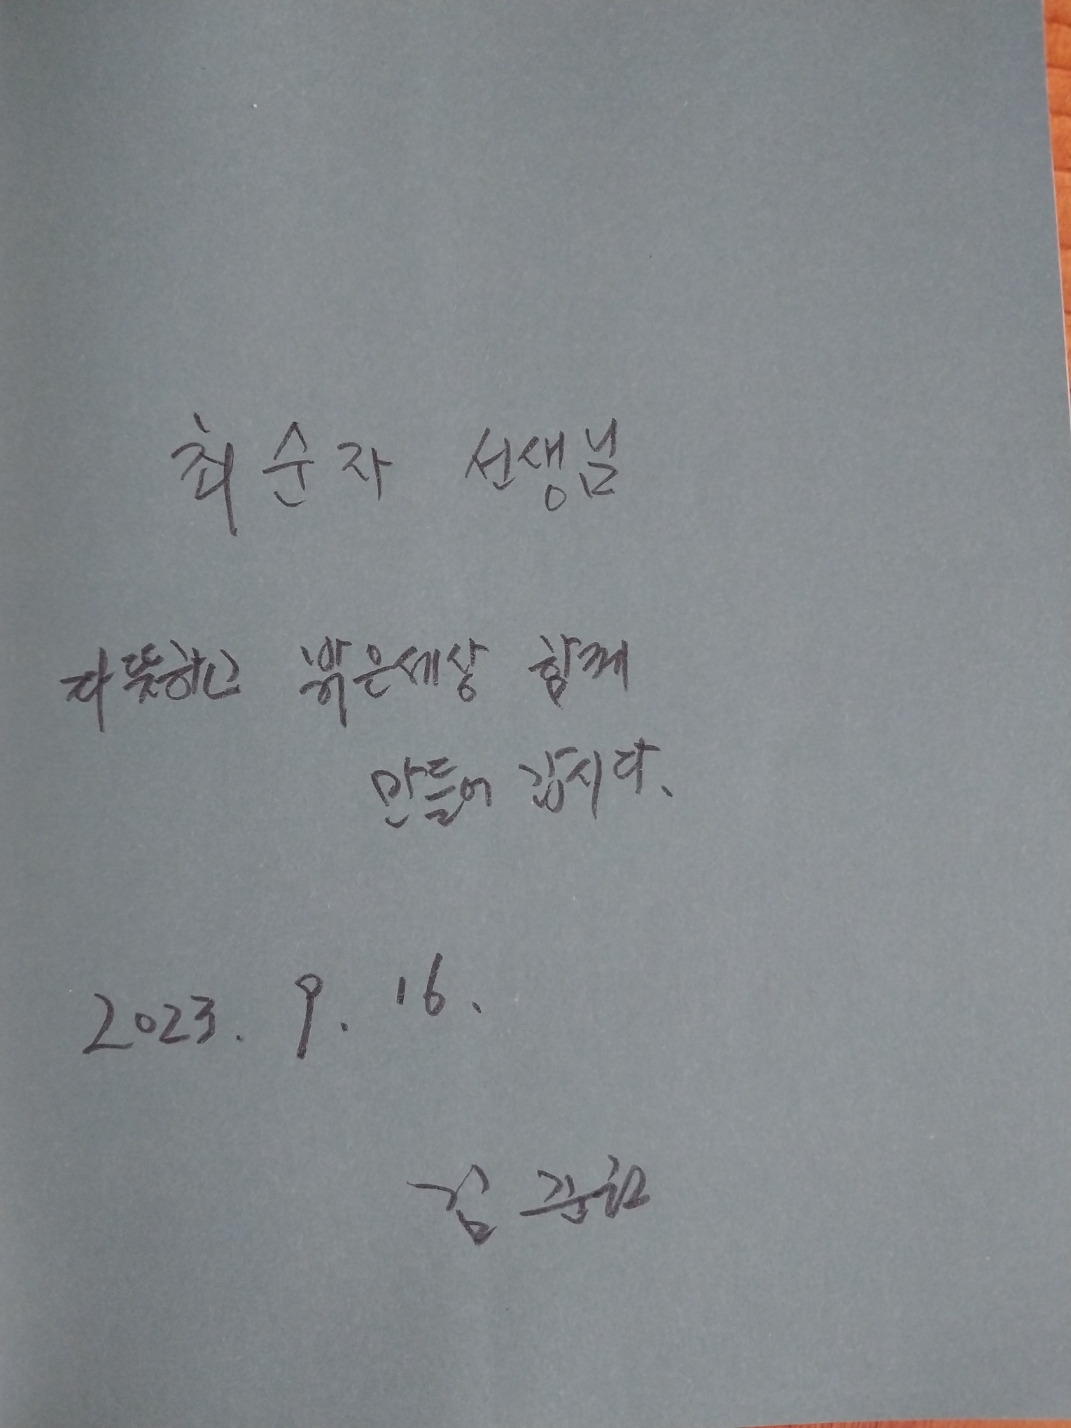 최순자 선생님
따뜻하고 밝은세상 함께
만들어 갑시다.
2023. 9. 16.
김